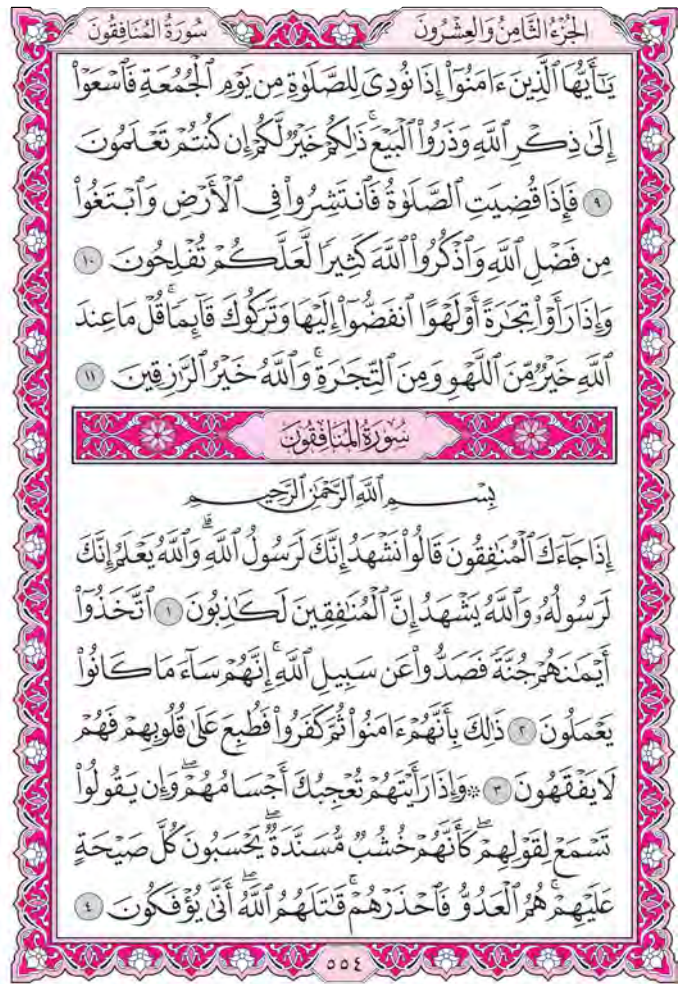 الجُزْءُ الثَّامِنُ وَالعِشْرُونَ سُورَةُ المُنَافِقُونَ
يَـٰٓأَيُّهَا ٱلَّذِينَ ءَامَنُوٓاْ إِذَا نُودِىَ لِلصَّلَوٰةِ مِن يَوْمِ ٱلْجُمُعَةِ فَٱسْعَوْاْ
إِلَىٰ ذِكْرِ ٱللَّهِ وَذَرُواْ ٱلْبَيْعَۚ ذَٰلِكُمْ خَيْرٌ لَّكُمْ إِن كُنتُمْ تَعْلَمُونَ
٩ فَإِذَا قُضِيَتِ ٱلصَّلَوٰةُ فَٱنتَشِرُواْ فِى ٱلْأَرْضِ وَٱبْتَغُواْ
مِن فَضْلِ ٱللَّهِ وَٱذْكُرُواْ ٱللَّهَ كَثِيرًا لَّعَلَّكُمْ تُفْلِحُونَ ١٠
وَإِذَا رَأَوْاْ تِجَـٰرَةً أَوْ لَهْوًا ٱنفَضُّوٓاْ إِلَيْهَا وَتَرَكُوكَ قَآئِمًاۚ قُلْ مَا عِندَ
ٱللَّهِ خَيْرٌ مِّنَ ٱللَّهْوِ وَمِنَ ٱلتِّجَـٰرَةِۚ وَٱللَّهُ خَيْرُ ٱلرَّٰزِقِينَ ١١
سُورَةُ المُنَافِقُونَ
بِسْمِ ٱللَّهِ ٱلرَّحْمَـٰنِ ٱلرَّحِيمِ
إِذَا جَآءَكَ ٱلْمُنَـٰفِقُونَ قَالُواْ نَشْهَدُ إِنَّكَ لَرَسُولُ ٱللَّهِۗ وَٱللَّهُ يَعْلَمُ إِنَّكَ
لَرَسُولُهُۥ وَٱللَّهُ يَشْهَدُ إِنَّ ٱلْمُنَـٰفِقِينَ لَكَـٰذِبُونَ ١ ٱتَّخَذُوٓاْ
أَيْمَـٰنَهُمْ جُنَّةً فَصَدُّواْ عَن سَبِيلِ ٱللَّهِۚ إِنَّهُمْ سَآءَ مَا كَانُواْ
يَعْمَلُونَ ٢ ذَٰلِكَ بِأَنَّهُمْ ءَامَنُواْ ثُمَّ كَفَرُواْ فَطُبِعَ عَلَىٰ قُلُوبِهِمْ فَهُمْ
لَا يَفْقَهُونَ ٣ ۞ وَإِذَا رَأَيْتَهُمْ تُعْجِبُكَ أَجْسَامُهُمْۖ وَإِن يَقُولُواْ
تَسْمَعْ لِقَوْلِهِمْۖ كَأَنَّهُمْ خُشُبٌ مُّسَنَّدَةٌۖ يَحْسَبُونَ كُلَّ صَيْحَةٍ
عَلَيْهِمْۚ هُمُ ٱلْعَدُوُّ فَٱحْذَرْهُمْۚ قَـٰتَلَهُمُ ٱللَّهُۖ أَنَّىٰ يُؤْفَكُونَ ٤
٥٥٤